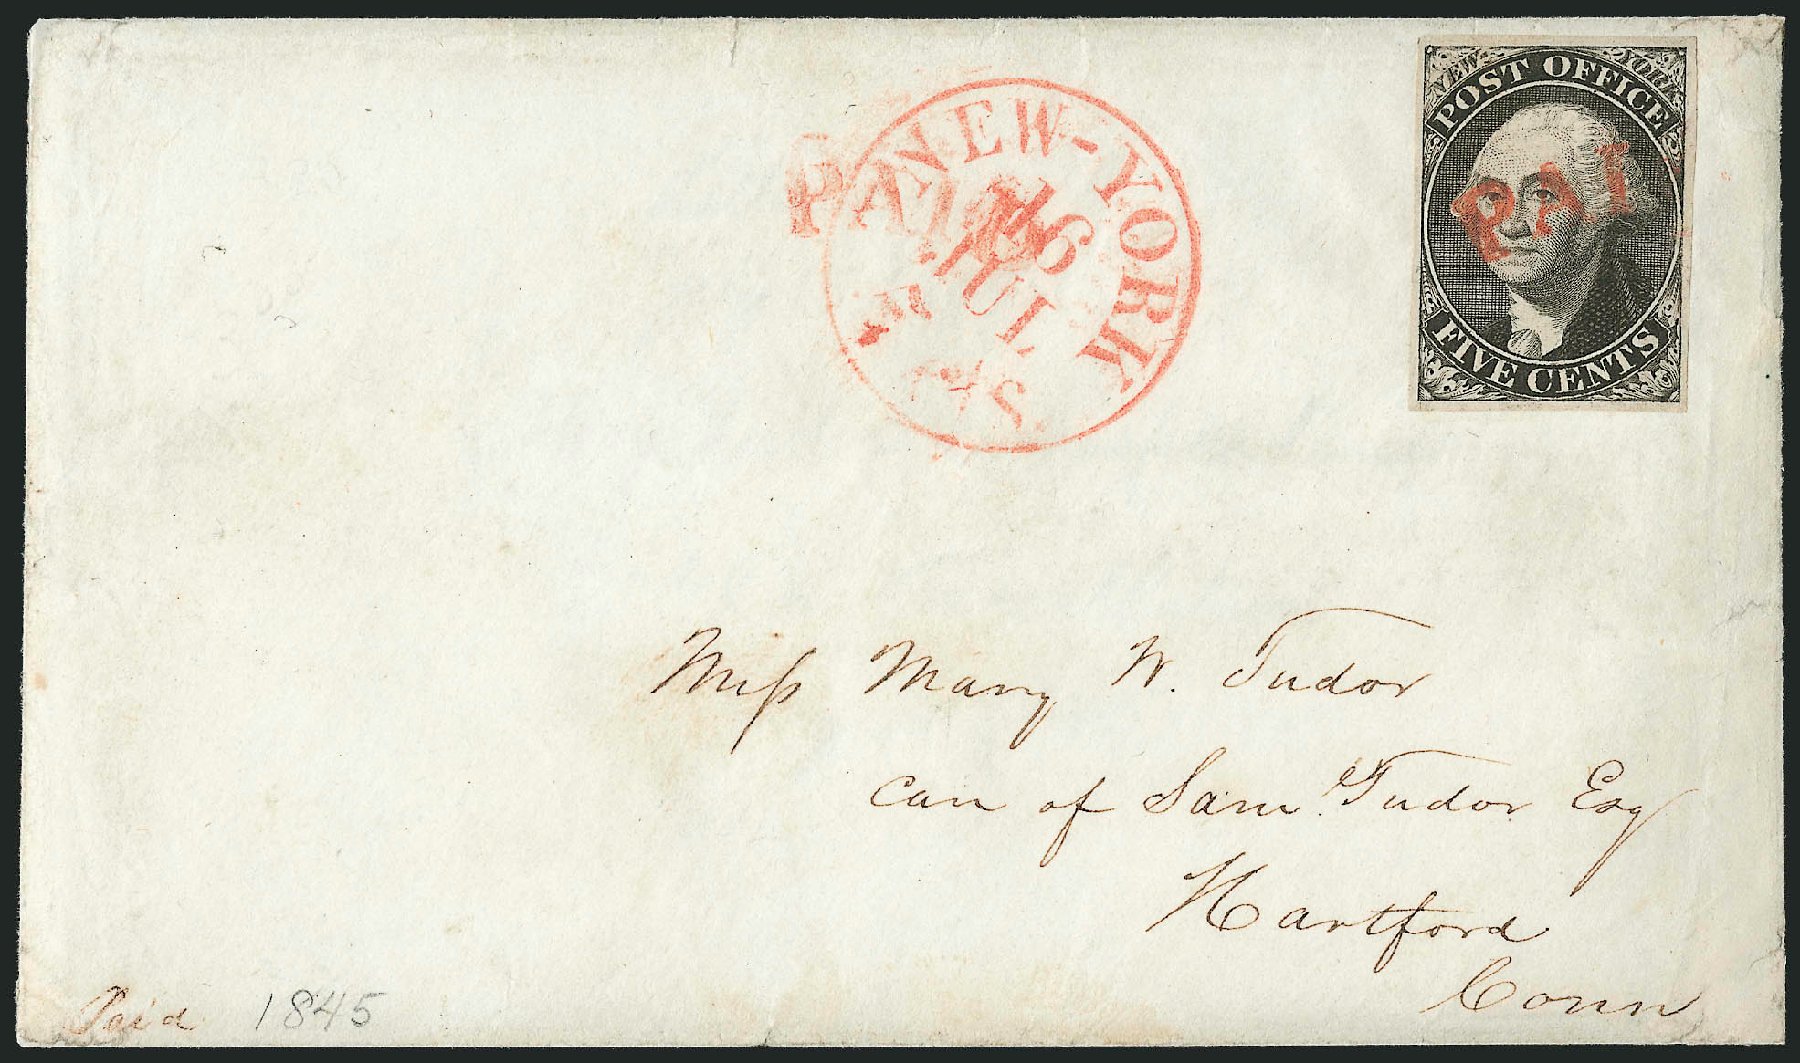 NEW YORK
POST OFFICE
PAI
FIVE CENTS
NEW-YORK
PAID
16
JUL
5 cts
Miss Mary W. Tudor
care of Sam. Tudor Esq
Hartford
Conn
Paid 1845